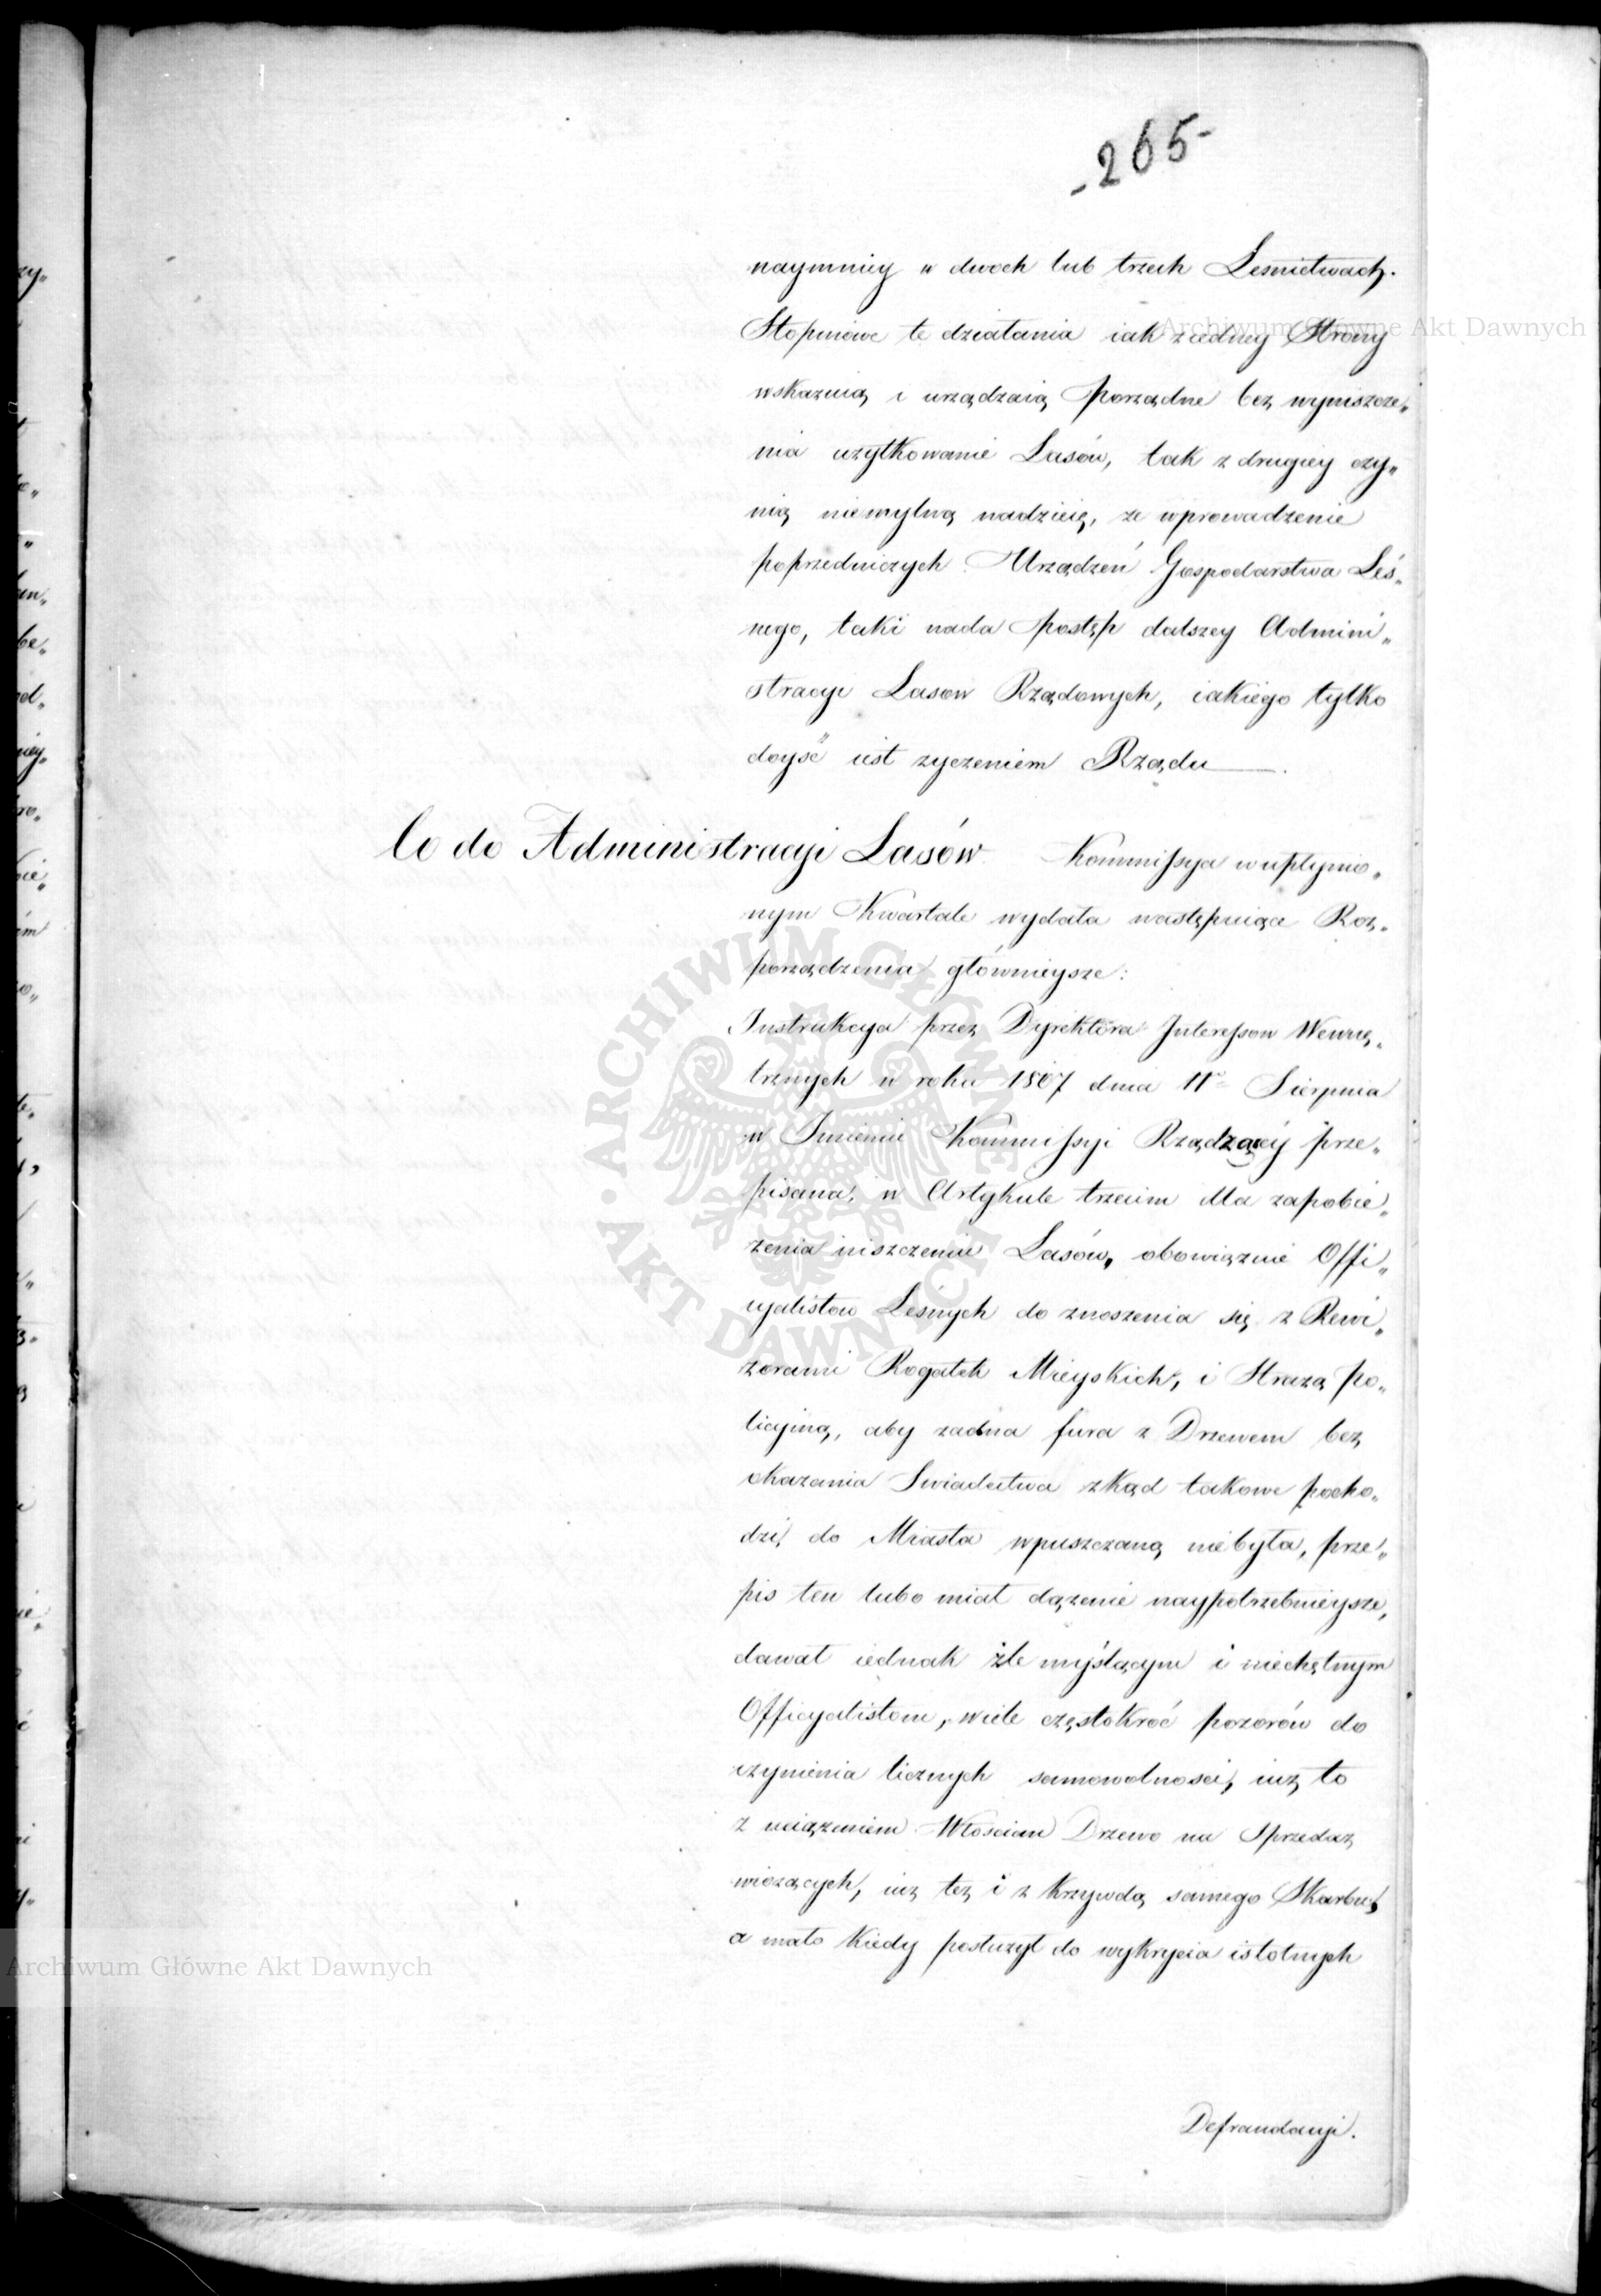 -265-
naymniey w dwoch lub trzech Lesnictwach.
Stopniowe te działania iak z iedney Strony
wskazuią i urządzaią porządne bez wyniszcze„
nia użytkowanie Lasów, tak z drugiey czy„
nią niemylną nadzieię, że wprowadzenie
poprzedniczych Urządzeń Gospodarstwa Leś„
nego, taki nada postęp dalszey Admini„
stracyi Lasow Rządowych, iakiego tylko
doyść iest zyczeniem Rządu
Co do Administracyi Lasów. Kommissya w upłynio„
nym Kwartale wydała następuiące Roz„
porządzenia głównieysze:
Instrukcya przez Dyrektora Interessow Wewnę„
trznych w roku 1807 dnia 11º Sierpnia
w Imieniu Kommissyi Rządzącéy prze„
pisana, w Artykule trzecim dla zapobie„
żenia niszczeniu Lasów, obowiązuie Offi„
cyalistow Leśnych do znoszenia się z Rewi„
zorami Rogatek Mieyskich, i Strażą po„
licyiną, aby żadna fura z Drzewem bez
okazania Swiadectwa zkąd takowe pocho„
dzi, do Miasta wpuszczaną niebyła, prze„
pis ten lubo miał dążenie naypotrzebnieysze,
dawał iednak źle myślącym i niechętnym
Officyalistom, wiele częstokroć pozorów do
czynienia licznych samowolnosci, iuż to
z uciążeniem Włościan Drzewo na Sprzedaż
wiozących, iuż też i z krzywdą samego Skarbu,
a mało kiedy posłużył do wykrycia istotnych
Defraudacyi.
Archiwum Główne Akt Dawnych
Archiwum Główne Akt Dawnych
ARCHIWUM GŁÓWNE AKT DAWNYCH